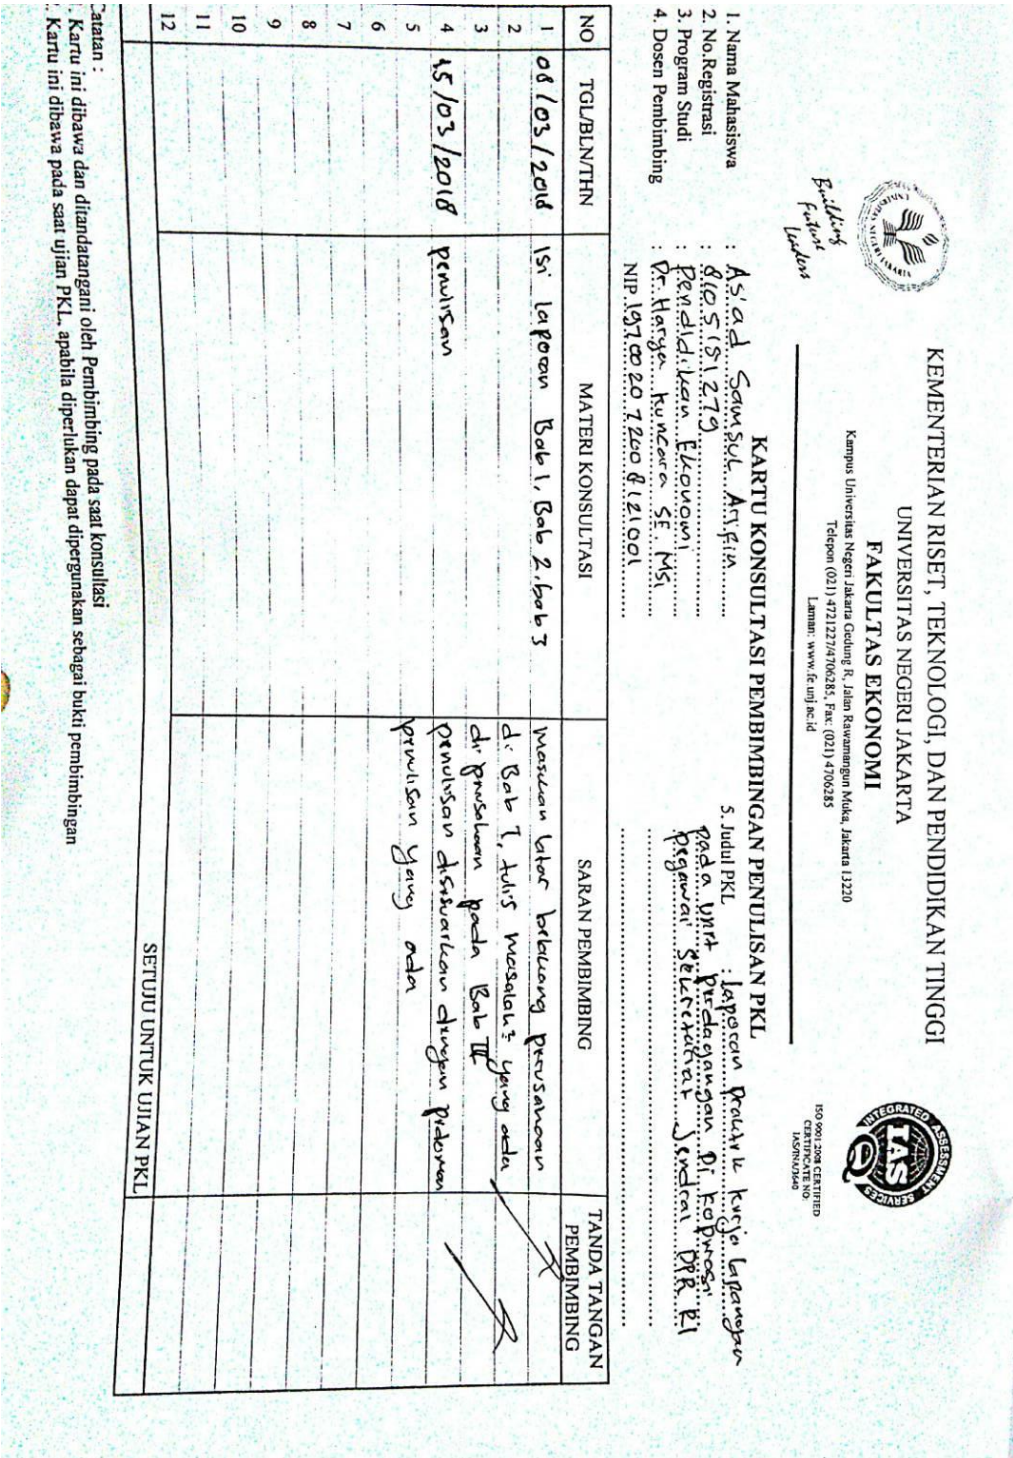 KEMENTERIAN RISET, TEKNOLOGI, DAN PENDIDIKAN TINGGI
UNIVERSITAS NEGERI JAKARTA
FAKULTAS EKONOMI
Kampus Universitas Negeri Jakarta Gedung R, Jalan Rawamangun Muka, Jakarta 13220
Telepon (021) 4721227/4706285, Fax: (021) 4706285
Laman: www.fe.unj.ac.id
UNIVERSITAS NEGERI JAKARTA
Building
Future
Leaders
INTEGRATED ASSESSMENT SERVICES
IAS
Q
ISO 9001:2008 CERTIFIED
CERTIFICATE NO:
IAS/INA/3640
KARTU KONSULTASI PEMBIMBINGAN PENULISAN PKL
1. Nama Mahasiswa : As'ad Samsul Arifin
2. No.Registrasi : 8105151279
3. Program Studi : Pendidikan Ekonomi
4. Dosen Pembimbing : Dr. Harya Kuncara SE. MSi
NIP.197002072008121001
5. Judul PKL : laporan praktik kerja lapangan
pada unit perdagangan Di Koperasi
pegawai Sekretariat Jendral DPR RI
NO TGL/BLN/THN MATERI KONSULTASI SARAN PEMBIMBING TANDA TANGAN PEMBIMBING
1 08/03/2018 Isi laporan Bab 1, Bab 2, bab 3 Masukan latar belakang perusahaan
2 di Bab I, tulis masalah2 yang ada
3 di perusahaan pada Bab III
4 15/03/2018 penulisan penulisan disesuaikan dengan pedoman
5 penulisan yang ada
6
7
8
9
10
11
12
SETUJU UNTUK UJIAN PKL
Catatan :
Kartu ini dibawa dan ditandatangani oleh Pembimbing pada saat konsultasi
Kartu ini dibawa pada saat ujian PKL, apabila diperlukan dapat dipergunakan sebagai bukti pembimbingan